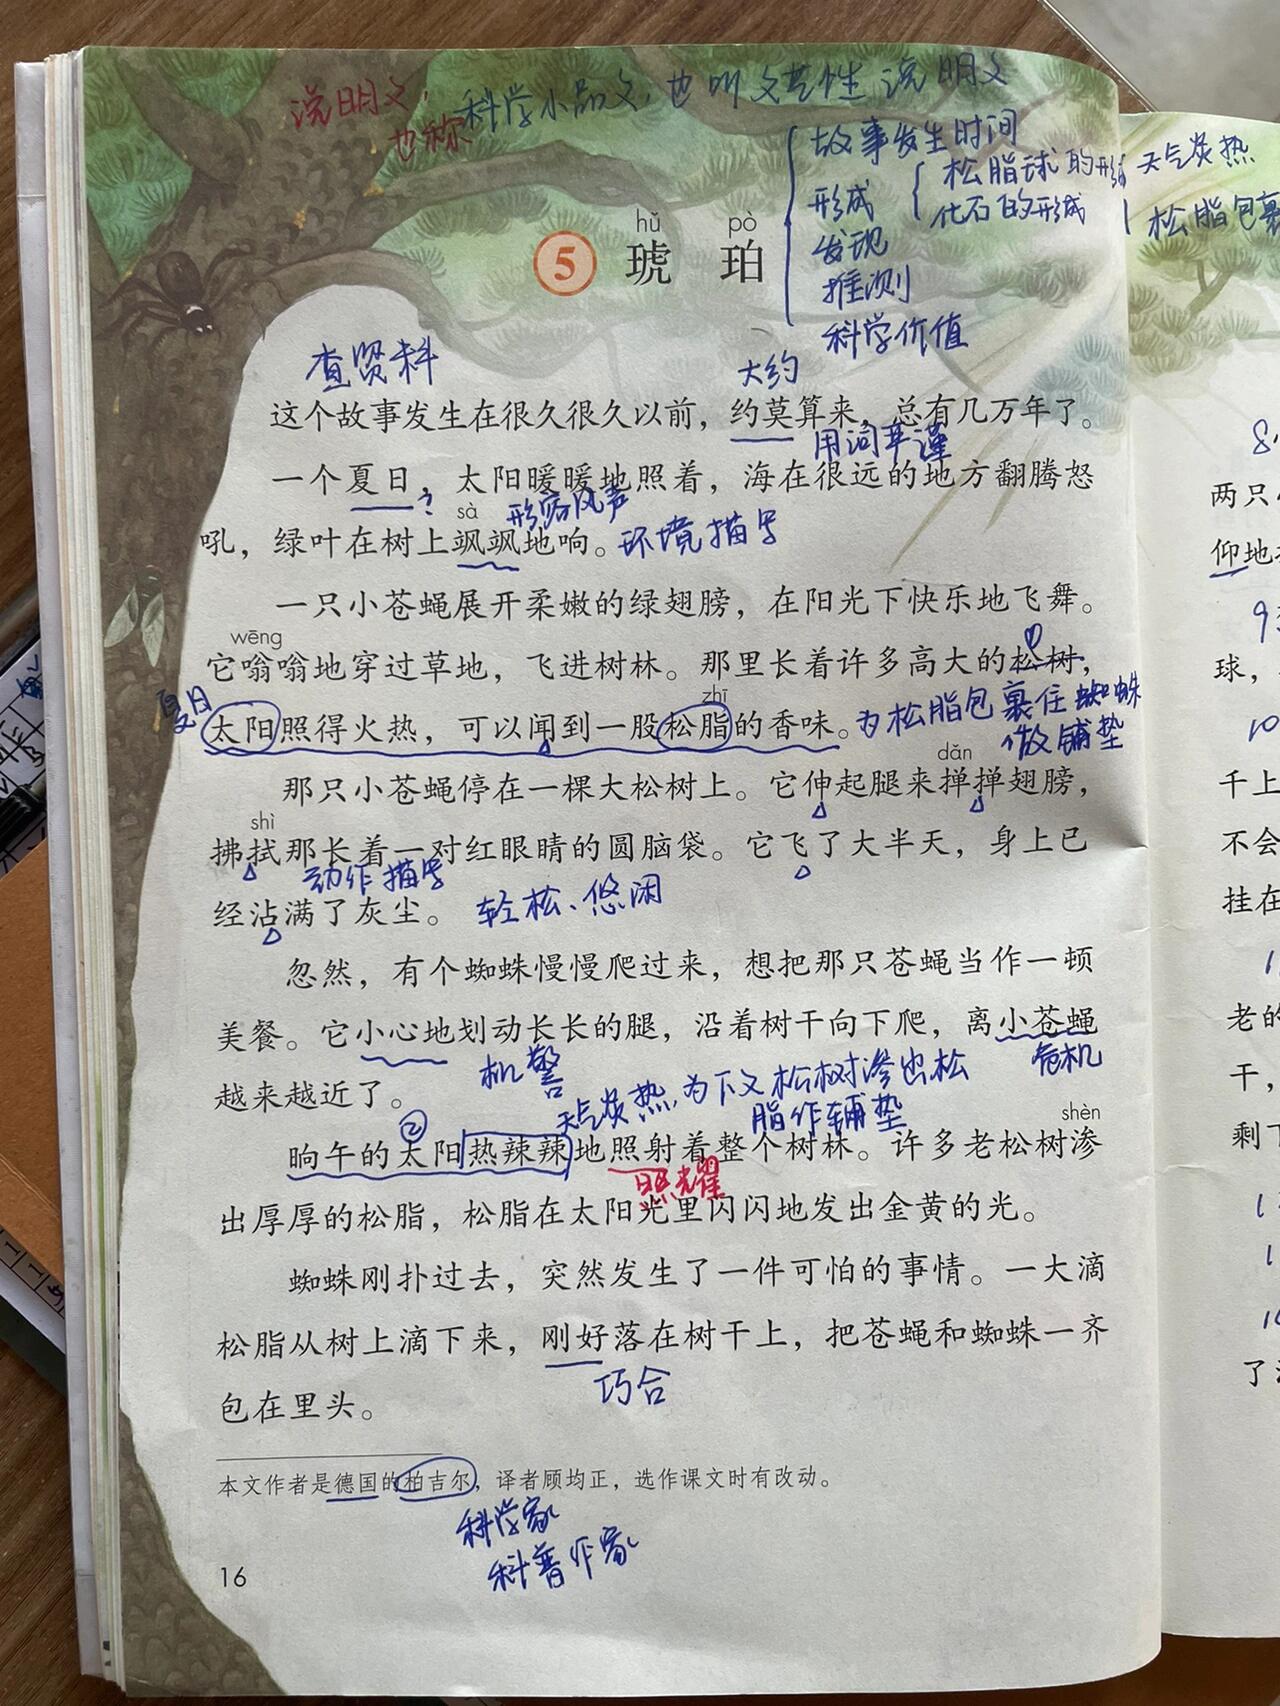 说明文,
也称
科学小品文,也叫文艺性说明文
故事发生时间
形成
松脂球的形成
天气炎热
松脂包裹
化石的形成
发现
推测
科学价值
hǔ pò
5 琥珀
查资料
大约
这个故事发生在很久很久以前，约莫算来，总有几万年了。
用词严谨
一个夏日，太阳暖暖地照着，海在很远的地方翻腾怒
?
sà
形容风声
吼，绿叶在树上飒飒地响。
环境描写
一只小苍蝇展开柔嫩的绿翅膀，在阳光下快乐地飞舞。
wēng
它嗡嗡地穿过草地，飞进树林。那里长着许多高大的松树，
夏日
zhī
太阳照得火热，可以闻到一股松脂的香味。
为松脂包裹住蜘蛛
做铺垫
dǎn
那只小苍蝇停在一棵大松树上。它伸起腿来掸掸翅膀，
shì
拂拭那长着一对红眼睛的圆脑袋。它飞了大半天，身上已
动作描写
经沾满了灰尘。
轻松、悠闲
忽然，有个蜘蛛慢慢爬过来，想把那只苍蝇当作一顿
美餐。它小心地划动长长的腿，沿着树干向下爬，离小苍蝇
机警
危机
越来越近了。
天气炎热,为下文松树渗出松
脂作铺垫
②
shèn
晌午的太阳热辣辣地照射着整个树林。许多老松树渗
照耀
出厚厚的松脂，松脂在太阳光里闪闪地发出金黄的光。
蜘蛛刚扑过去，突然发生了一件可怕的事情。一大滴
松脂从树上滴下来，刚好落在树干上，把苍蝇和蜘蛛一齐
巧合
包在里头。
本文作者是德国的柏吉尔，译者顾均正，选作课文时有改动。
科学家
科普作家
16
两只
仰地
9
球，
10
千上
不会
挂在
老的
干，
剩下
了